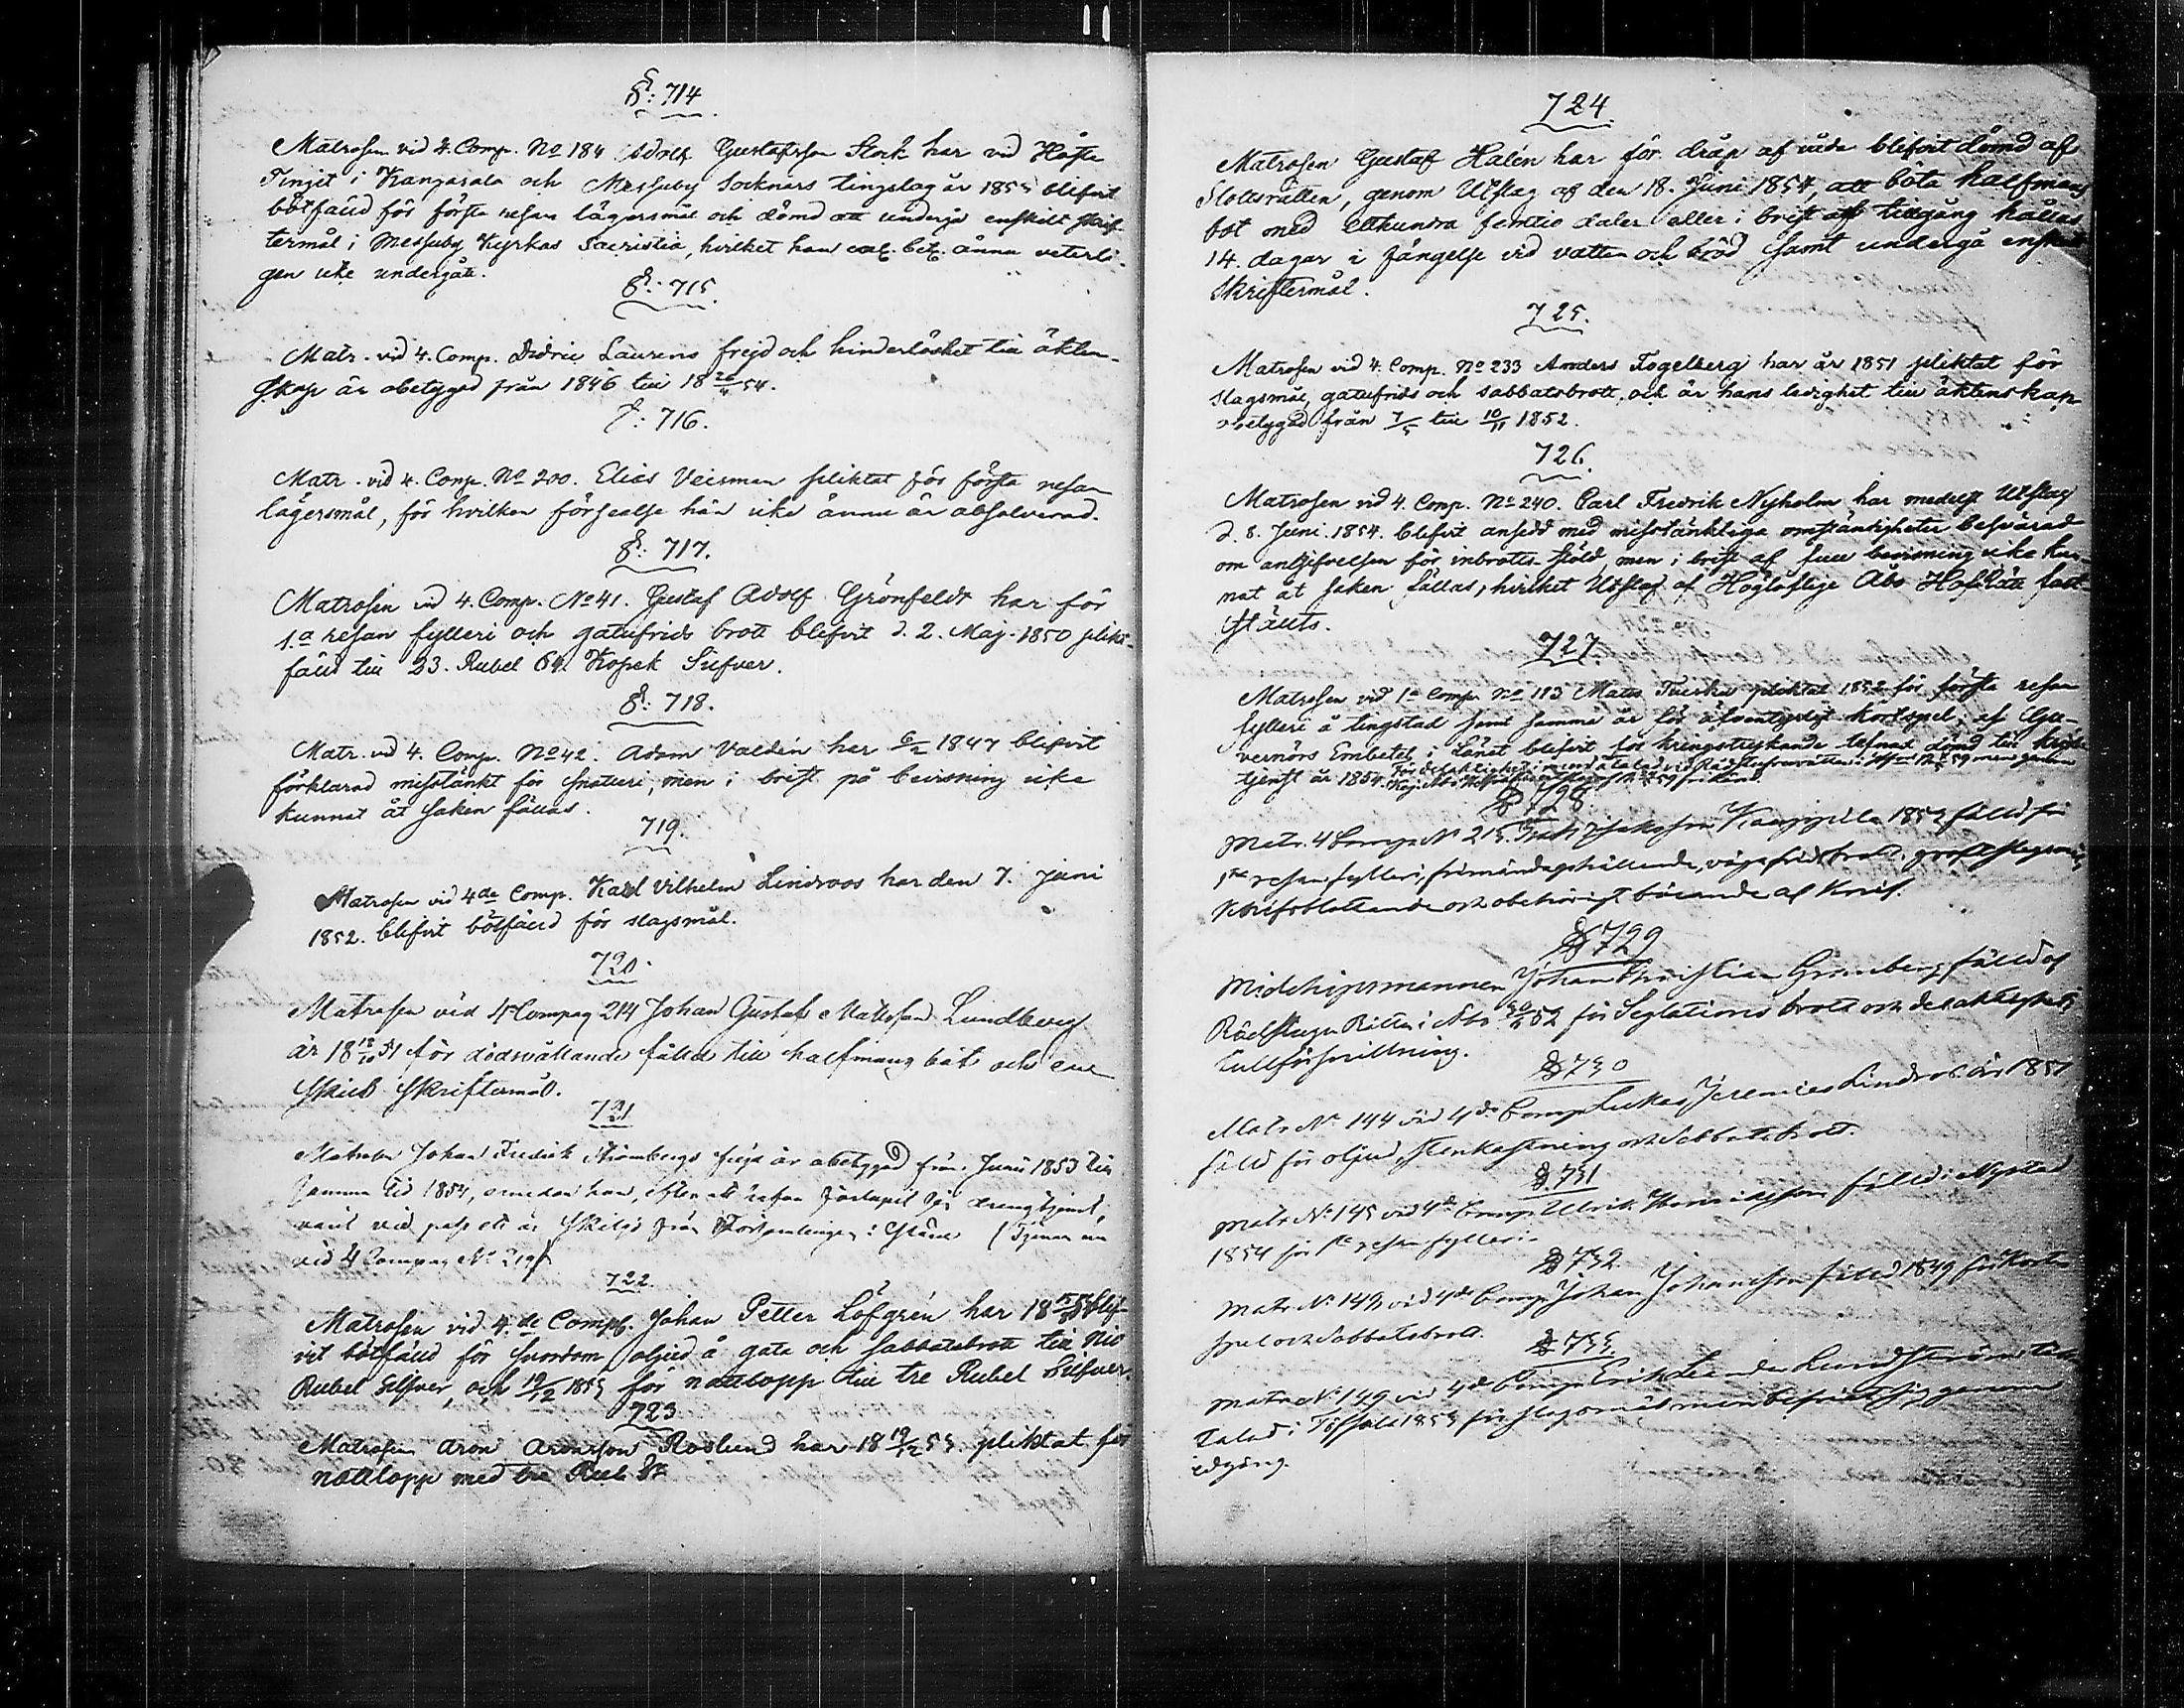 §: 714
Matrosen vid 4. Comp. No 184 Adolf Gustafsson Stock har vid Höste
Tinget i Kangasala och Messuby Socknars tingslag år 1853 blifvit
botfälld för första resan lägersmål och dömd att undergå enskilt skrif-
termål i Messuby Kyrkas Sacristia, hvilket han enl. bet. ännu veterli-
gen icke undergått.
§: 715.
Matr. vid 4. Comp. Didric Laurens frejd och hinderlöshet till äkten-
skap är obetygad från 1846 till 18 26/4 54.
§: 716.
Matr. vid 4. Comp. No 200. Elias Veisman pliktat för första resan
lägersmål, för hvilken förseelse hän icke ännu är absolverad.
§: 717.
Matrosen vid 4. Comp. No 41. Gustaf Adolf Grönfeldt har för
1.a resan fylleri och gatufrids brott blifvit d. 2. Maj. 1850 plikt-
fälld till 23. Rubel 64. Kopek Silfver.
§: 718.
Matr. vid 4. Comp. No 42. Adam Valdén har 6/2 1847 blifvit
förklarad misstänkt för snatteri, men i brist på bevisning icke
kunnat åt saken fällas.
719.
Matrosen vid 4de Comp. Karl Vilhelm Lindroos har den 7. Juni
1852. blifvit botfälld för slagsmål.
720.
Matrosen vid 4 Compag 214 Johan Gustaf Mattsson Lundberg
är 18 12/10 51 för dödsvållande fälld till halfmans bot och en-
skild Skriftermål.
721
Matrosen Johan Fredrik Strömbergs frejd är obetygad från Juni 1853 till
samma tid 1854, emedan han, efter att hafva förlupit sin drengtjenst,
varit vid pass ett år skiljd från Församlingen: (Tjenar nu
vid 4 Compag No 219)
722.
Matrosen vid 4.de Comp. Johan Petter Löfgrén har 18 blif-
vit botfälld för svordom oljud å gata och sabbatsbrott till Nio
Rubel Silfver, och 19/2 1855 för nattlopp till tre Rubel Silfver.
723
Matrosen Aron Aronsson Roslund har 18 19/2 55 pliktat för
nattlopp med tre Rub Sr
724.
Matrosen Gustaf Halén har för dråp af våda blifvit dömd af
Slottsrätten, genom Utslag af den 18. Juni 1854, att böta halfmans
bot med Etthundra femtio daler eller i brist af tillgång hållas
14. dagar i fängelse vid vatten och bröd samt undergå enskilt
Skriftermål.
725.
Matrosen vid 4. Comp. No 233 Anders Fogelberg har år 1851 pliktat för
slagsmål, gatufrids och sabbatsbrott, och är hans ledighet till äktenskap
obetygad från 7/5 till 10/11 1852.
726.
Matrosen vid 4. Comp. No 240. Carl Fredrik Nyholm har medelst Utslag
d. 8. Juni. 1854. blifvit ansedd med misstänkliga omständigheter besvärad
om angifvelsen för inbrotts stöld, men i brist af full bevisning icke kun-
nat åt saken fällas, hvilket Utslag af Höglöflige Åbo Hofrätt fast-
stälts.
727.
Matrosen vid 1a Comp. No 113 Matts Tuisku pliktat 1852 för första resan
fylleri å tingstad samt samma år för äfventyrligt kortspel; af Gu-
vernörs Embetet i Länet blifvit för kringstrykande lefnad dömd till krigs-
tjenst år 1854. För delaktighet i mord åtalad vid Rådstufvurätten i 59 men genom
Kejs. Åbo Hofrätts utslag af 59 frikänd.
§ 728.
Matr. 4 Comp. N 215. Isak Jakobsson Kauppila 1853 fälld för
1sta resan fylleri, frimåndagshållande, vägafridsbrott, groft slagsmål,
knifsblottande och obehörigt bärande af knif.
§ 729
Midshipsmannen Johan Christian Grönberg fälld af
Rådstugu Rätten i Åbo 52 för Seglations brott och delaktighet i
tullförsnillning.
§ 730
Matr. No 144 vid 4de Comp Lukas Jeremias Lindroos år 1851
fälld för oljud, stenkastning och Sabbatsbrott.
§ 731
Matr. No 145 vid 4de Comp Ulrik Henriksson fälld i Nystad
1854 för 1sta resan fylleri.
§ 732.
Matr. No 147 vid 4de Comp Johan Johansson fälld 1849 för Kort-
spel och Sabbatsbrott.
§ 733.
Matr. No 149 vid 4de Comp. Erik Leander Lundström till-
talad i Töfsala 1853 för slagsmål men befriat sig genom
edgång.